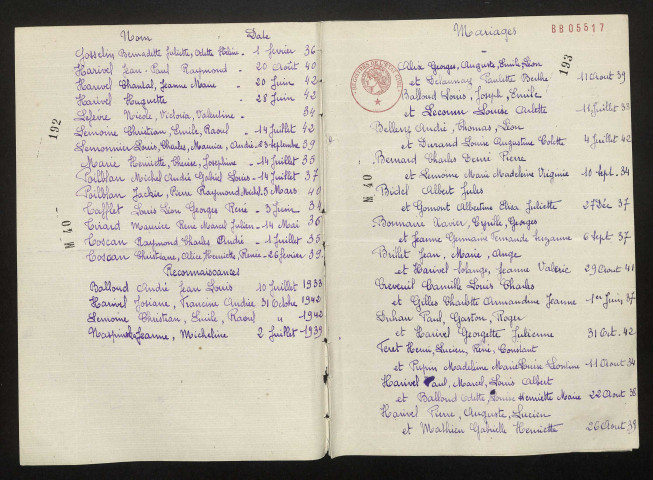 Nom Date
Josselin Bernadette Juliette, Odette Hélène - 1 fevrier 36
Harivel Jean-Paul Raymond - 20 Août 40
Harivel Chantal, Jeanne Marie - 20 Juin 42
Harivel Huguette - 28 Juin 42
Lefèvre Nicole, Victoria, Valentine - 34
Lemoine Christian, Emile, Raoul - 14 Juillet 42
Lemonnier Louis, Charles, Maurice, André 23 septembre 39
Marie Henriette, Thérèse, Josephine - 14 Juillet 35
Poilblan Michel André Gabriel Louis - 14 Juillet 37
Poilblan Jackie, Pierre Raymond Michel 3 Mars 40
Tafflet Louis Léon Georges René - 3 Juin 34
Tiard Maurice René Marcel Julien - 14 Mai 36
Toscan Raymond Charles André - 1 Juillet 35
Toscan Christiane, Alice Henriette, Renée - 26 fevrier 39
Reconnaissances
Balloud André Jean Louis 10 Juillet 1933
Harivel Josiane, Francine Andrée 31 Octobre 1942
Lemoine Christian, Emile, Raoul " 1942
Jeanne, Micheline 2 Juillet 1939
192
M 40
Mariages
BB05517
193
M 40
Alix Georges, Auguste, Emile, Léon
et Delaunay Paulette Berthe 11 Aout 39
Balloud Louis, Joseph, Emile
et Leconne Louise Arlette 11 Juillet 38
Bellenz André, Thomas, Léon
et Durand Louise Augustine Colette 4 Juillet 42
Bernard Charles Denis Pierre
et Lemoine Marie Madeleine Virginie 10 Sept. 34
Bidel Albert Jules
et Gomont Albertine Elisa Juliette 27 Déc 37
Bonnaire Xavier, Cyrille, Georges
et Jeanne Germaine Fernande Suzanne 6 Sept 37
Brillet Jean, Marie, Ange
et Harivel Solange, Jeanne Valérie 29 Aout 41
Creveuil Camille Louis Charles
et Gilles Charlotte Armandine Jeanne 1er Juin 37
Duhan Paul, Gaston, Roger
et Harivel Georgette Julienne 31 Oct. 42
Feret Henri, Lucien, René, Constant
et Pepin Madeleine Marie Louise Léontine 11 Aout 34
Harivel Paul, Marcel, Louis Albert
et Balloud Odette, Louise Henriette Marie 22 Aout 38
Harivel Pierre, Auguste, Lucien
et Mathieu Gabrielle Henriette 26 Aout 39